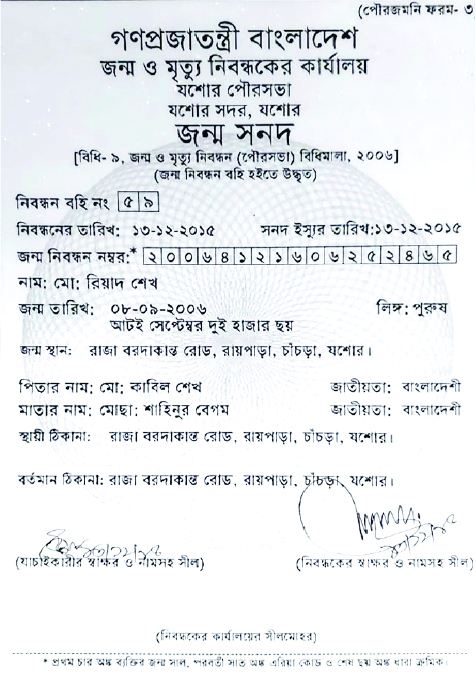 (পৌরজমনি ফরম- ৩
গণপ্রজাতন্ত্রী বাংলাদেশ
জন্ম ও মৃত্যু নিবন্ধকের কার্যালয়
যশোর পৌরসভা
যশোর সদর, যশোর
জন্ম সনদ
[বিধি- ৯, জন্ম ও মৃত্যু নিবন্ধন (পৌরসভা) বিধিমালা, ২০০৬]
(জন্ম নিবন্ধন বহি হইতে উদ্ধৃত)
নিবন্ধন বহি নং ৫৯
নিবন্ধনের তারিখ: ১৩-১২-২০১৫ সনদ ইস্যুর তারিখ:১৩-১২-২০১৫
জন্ম নিবন্ধন নম্বর:* ২০০৬৪১২১৬০৬২৫২৪৬৫
নাম: মো: রিয়াদ শেখ
জন্ম তারিখ: ০৮-০৯-২০০৬ লিঙ্গ: পুরুষ
আটই সেপ্টেম্বর দুই হাজার ছয়
জন্ম স্থান: রাজা বরদাকান্ত রোড, রায়পাড়া, চাঁচড়া, যশোর।
পিতার নাম: মো: কাবিল শেখ জাতীয়তা: বাংলাদেশী
মাতার নাম: মোছা: শাহিনুর বেগম জাতীয়তা: বাংলাদেশী
স্থায়ী ঠিকানা: রাজা বরদাকান্ত রোড, রায়পাড়া, চাঁচড়া, যশোর।
বর্তমান ঠিকানা: রাজা বরদাকান্ত রোড, রায়পাড়া, চাঁচড়া, যশোর।
(যাচাইকারীর স্বাক্ষর ও নামসহ সীল) (নিবন্ধকের স্বাক্ষর ও নামসহ সীল)
(নিবন্ধকের কার্যালয়ের সীলমোহর)
* প্রথম চার অঙ্ক ব্যক্তির জন্ম সাল, পরবর্তী সাত অঙ্ক এরিয়া কোড ও শেষ ছয় অঙ্ক ধারা ক্রমিক।